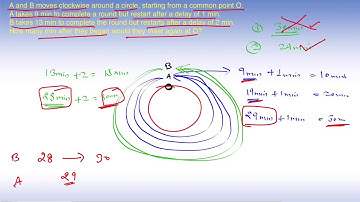 A and B moves clockwise around a circle, starting from a common point O.
A takes 9 min to complete a round but restart after a delay of 1 min.
B takes 13 min to complete the round but restart after a delay of 2 min.
How many min after they began would they meet again at O?
① 30min
② 29min
13min + 2 = 15min
28min + 2 = 30min
B
A
9min + 1min = 10min
19min + 1min = 20min
29min + 1min = 30m
B 28 → 30
A 29